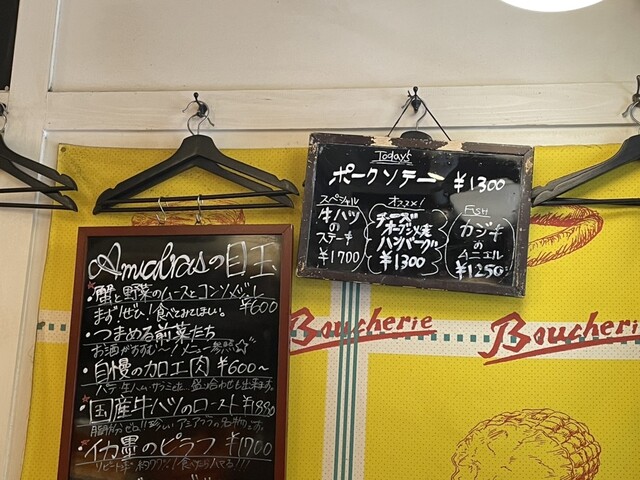 Today's
ポークソテー ¥1300
スペシャル
牛ハツ
の
ステーキ
¥1700
オススメ!
チーズ
オーブン焼
ハンバーグ
¥1300
FISH
カジキ
の
ムニエル
¥1250
の目玉
・蟹と野菜のムースとコンソメジュレ
¥600
まず!ぜひ!食べてみてほしい。
・つまめる前菜たち
お酒がすすむ〜!メニュー参照☆
・自慢の加工肉 ¥600〜
パテ・生ハム・サラミ 盛り合わせも出来ます。
・国産牛ハツのロースト
脂肪分ゼロ!!珍しい の名物です。
・イカ墨のピラフ ¥1700
リピート率 !食べたら
Boucherie
Boucherie